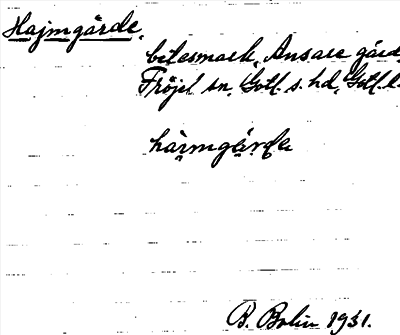 Hajmgärde,
betesmark, Ansare gård,
Fröjel sn, Gotl. s. hd, Gotl. l.
häimgärde
B. Bolin 1931.